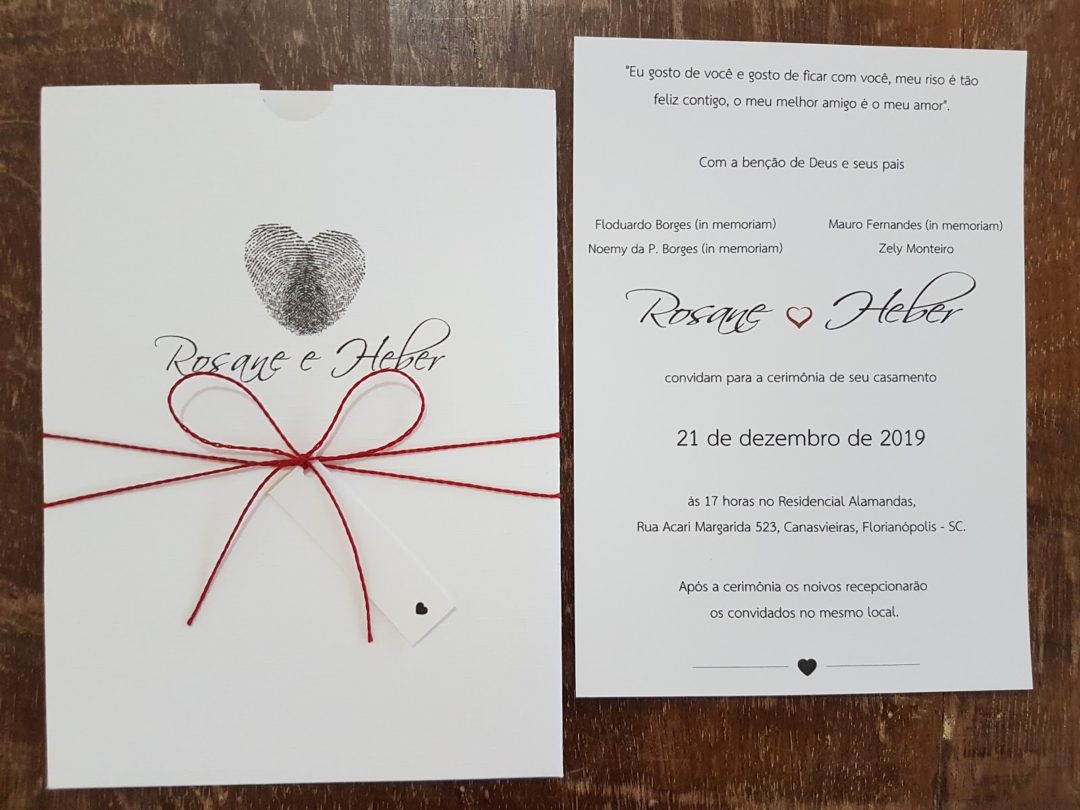 Rosane e Heber
"Eu gosto de você e gosto de ficar com você, meu riso é tão
feliz contigo, o meu melhor amigo é o meu amor".
Com a benção de Deus e seus pais
Floduardo Borges (in memoriam)
Noemy da P. Borges (in memoriam)
Mauro Fernandes (in memoriam)
Zely Monteiro
Rosane Heber
convidam para a cerimônia de seu casamento
21 de dezembro de 2019
às 17 horas no Residencial Alamandas,
Rua Acari Margarida 523, Canasvieiras, Florianópolis - SC.
Após a cerimônia os noivos recepcionarão
os convidados no mesmo local.